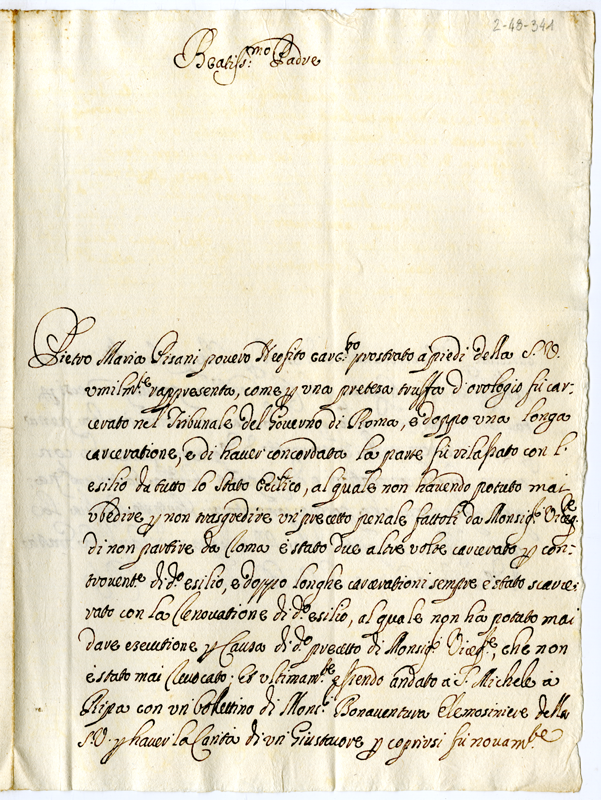 2-48-341
Beatiss:mo Padre
Pietro Maria Pisani povero Neofito carc:to prostrato a piedi della S. V.
vmilmte rappresenta, come p vna preteza truffa d'orologio fù car-
cerato nel Tribunale del Governo di Roma, e doppo vna longa
carceratione, e di haver concordata la parte fù rilassato con l'
esilio da tutto lo Stato Ecclico, al quale non havendo potuto mai
vbedire p non trasgredire vn precetto penale fattoli da Monsigr Viceg:te
di non partire da Roma è stato due altre volte carcerato p con-
trovente di do esilio, e doppo longhe carcerationi sempre è stato scarce-
rato con la Renovatione di do esilio, al quale non ha potuto mai
dare ezecutione p Causa di do precetto di Monsigr Viceg:te, che non
è stato mai Revocato; Et vltimamte essendo andato a S. Michele a
Ripa con vn bollettino di Monsr Bonaventura Elemosiniere della
S. V. p haver la Carità di vn Giustacore p coprirsi fù novamte